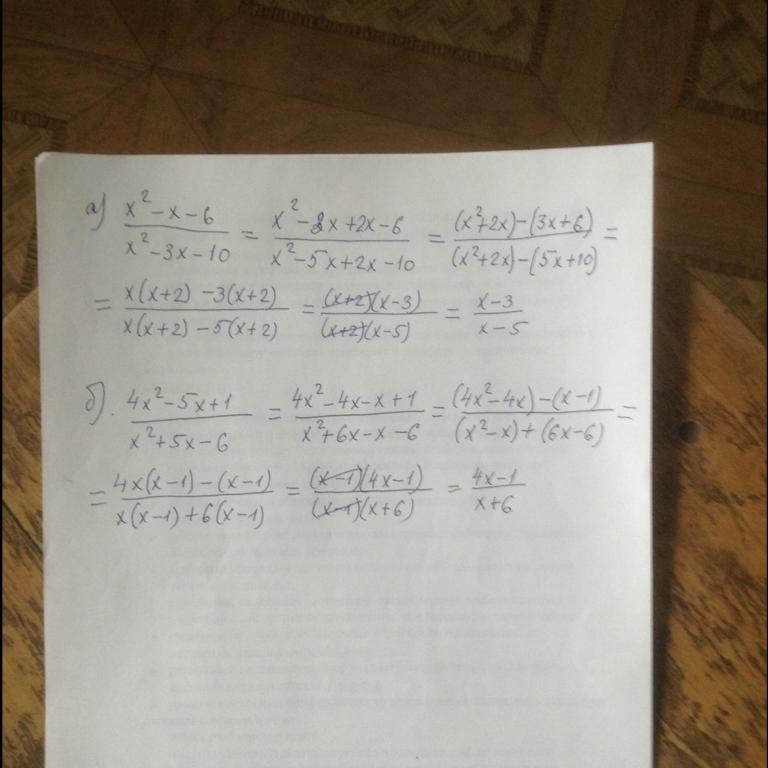 а) (x²-x-6)/(x²-3x-10) = (x²-3x+2x-6)/(x²-5x+2x-10) = ((x²+2x)-(3x+6))/((x²+2x)-(5x+10)) =
= (x(x+2)-3(x+2))/(x(x+2)-5(x+2)) = ((x+2)(x-3))/((x+2)(x-5)) = (x-3)/(x-5)
б). (4x²-5x+1)/(x²+5x-6) = (4x²-4x-x+1)/(x²+6x-x-6) = ((4x²-4x)-(x-1))/((x²-x)+(6x-6)) =
= (4x(x-1)-(x-1))/(x(x-1)+6(x-1)) = ((x-1)(4x-1))/((x-1)(x+6)) = (4x-1)/(x+6)